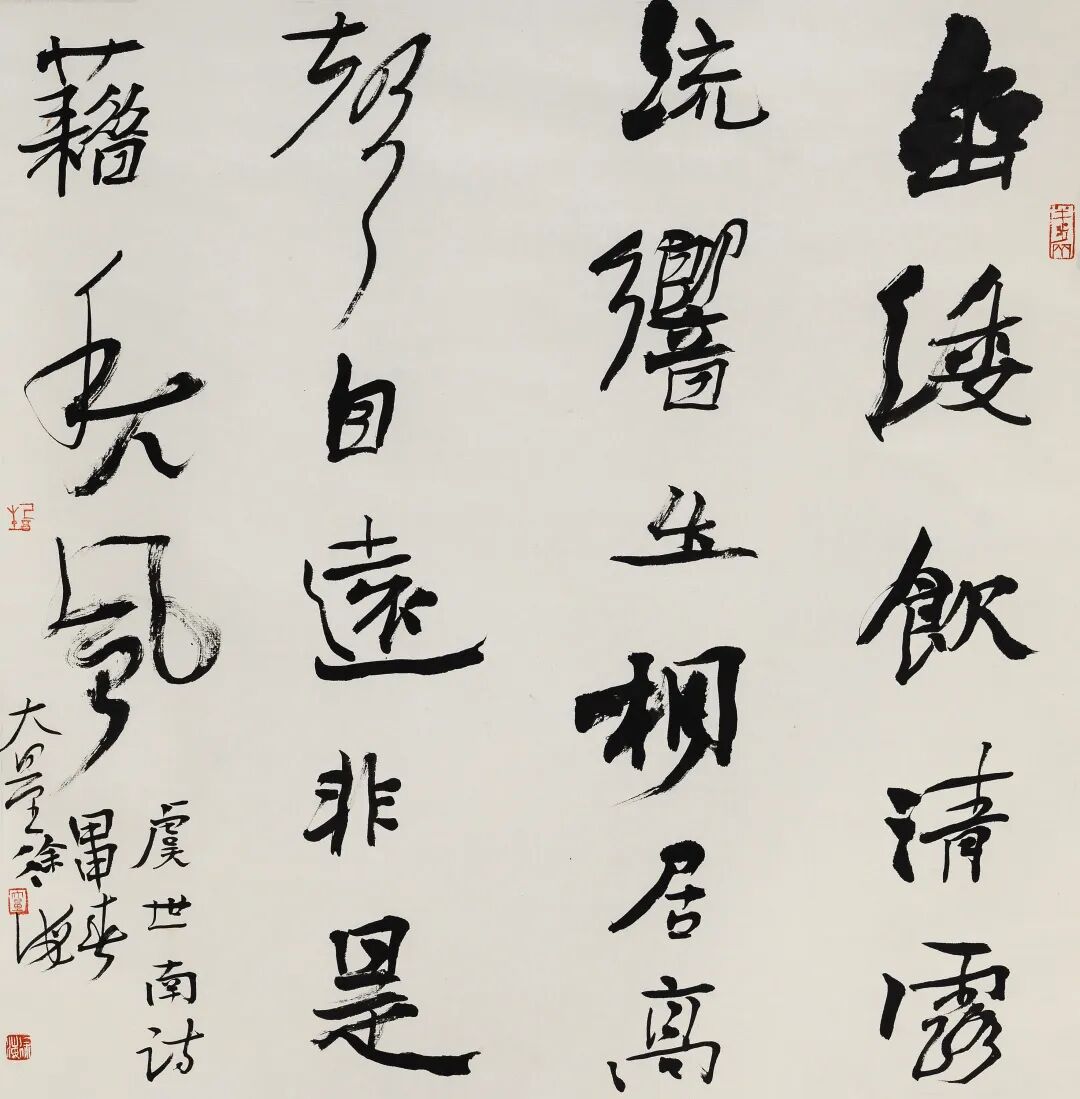 垂緌飲清露
流響出桐居高
聲自遠非是
藉秋風
虞世南詩
甲申春
徐海